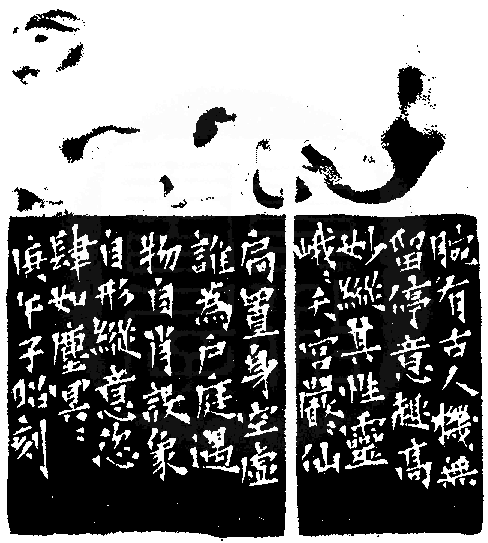 腕有古人機無
留停意趣高
妙縱其性靈
峨〻天宮嚴〻仙
扃置身空虛
誰為戶庭遇
物自肖設象
自形縱意恣
肆如塵冥〻
午子昭刻